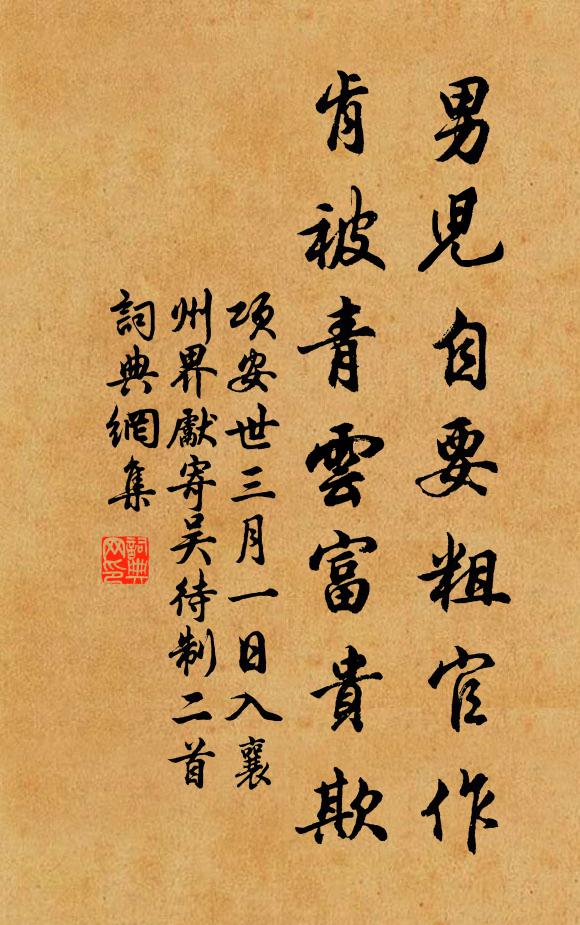 男兒自要粗官作
肯被青雲富貴欺
項安世三月一日入襄
州界獻寄吴待制二首
詞典網集
詞典
网印